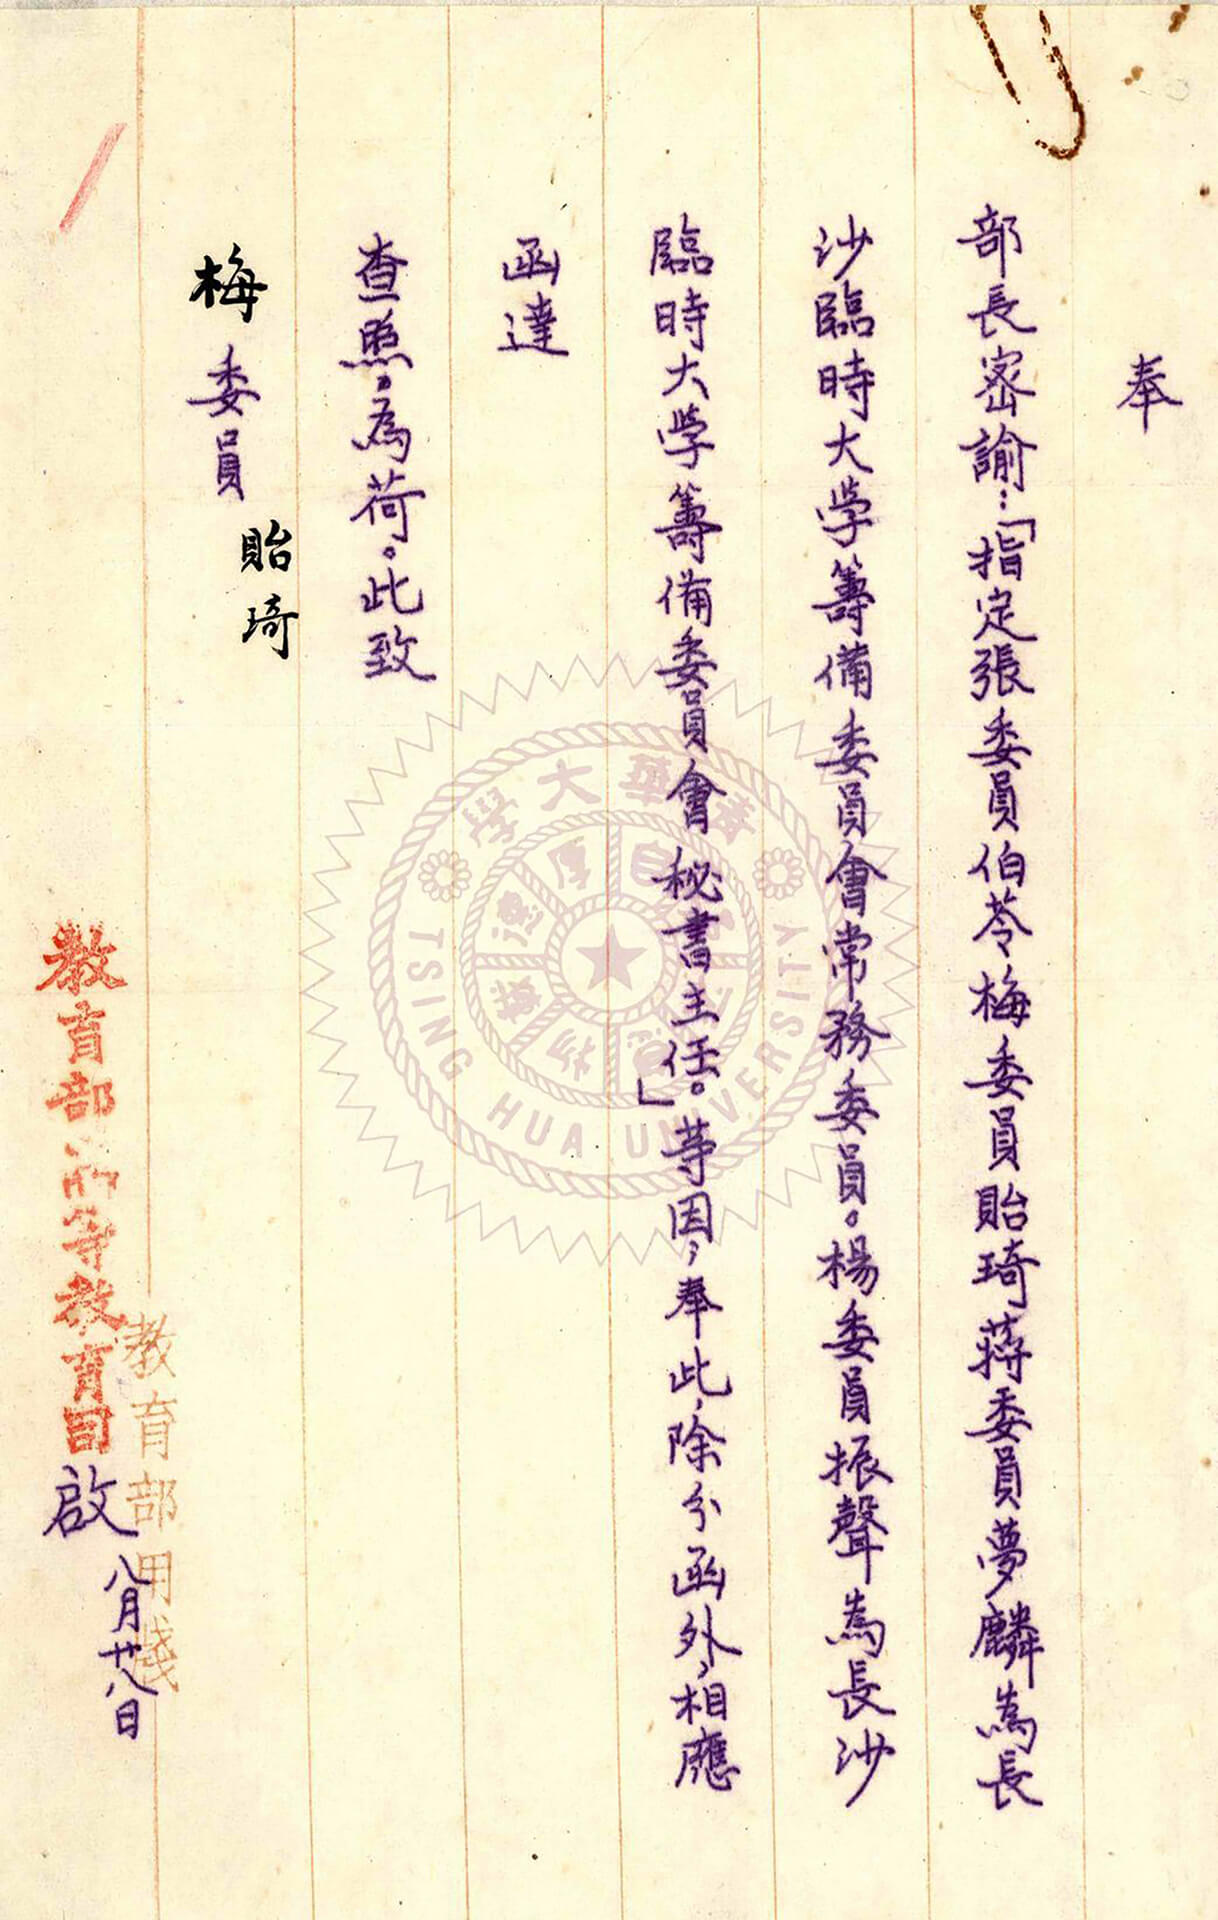 奉
部長密諭：「指定張委員伯苓梅委員貽琦蔣委員夢麟為長
沙臨時大学籌備委員會常務委員。楊委員振聲為長沙
臨時大学籌備委員會秘書主任。」等因，奉此，除分函外，相應
函達
查照，為荷。此致
梅委員
貽琦
教育部高等教育司啟
八月廿八日
教育部用箋
清華大學
TSING HUA UNIVERSITY
自強不息
厚德載物